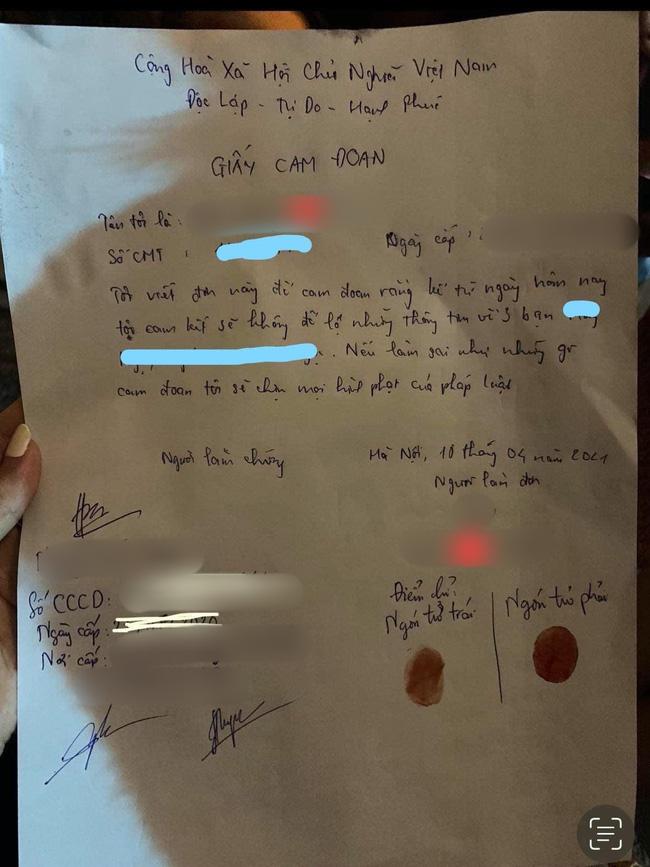 Cộng Hoà Xã Hội Chủ Nghĩa Việt Nam
Độc Lập - Tự Do - Hạnh Phúc
GIẤY CAM ĐOAN
Tên tôi là:
Số CMT : Ngày cấp :
Tôi viết đơn này để cam đoan rằng kể từ ngày hôm nay
tôi cam kết sẽ không để lộ những thông tin về 3 bạn
. Nếu làm sai như những gì
cam đoan tôi sẽ chịu mọi hình phạt của pháp luật
Người làm chứng
Hà Nội, 10 tháng 04 năm 2021
Người làm đơn
Số CCCD:
Ngày cấp:
Nơi cấp:
Điểm chỉ:
Ngón trỏ trái
Ngón trỏ phải